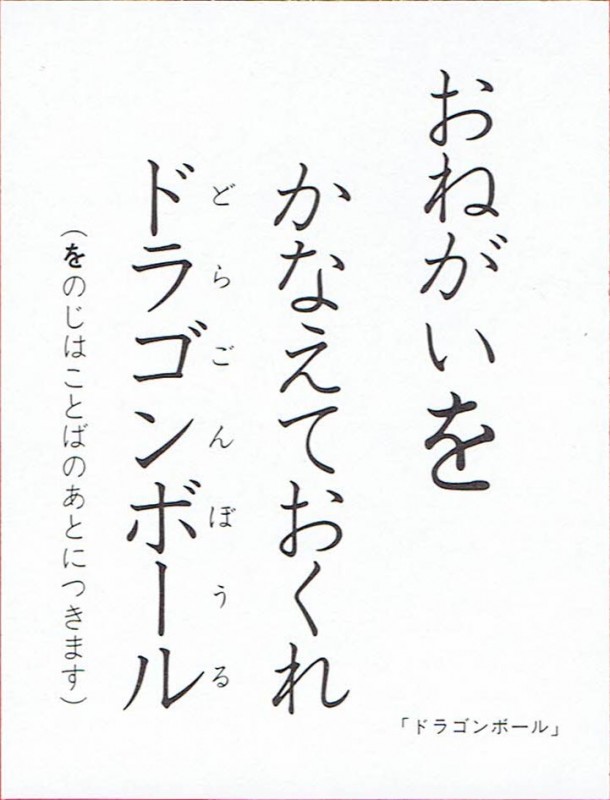 おねがいを
かなえておくれ
ドラゴンボール
どらごんぼうる
(をのじはことばのあとにつきます)
「ドラゴンボール」